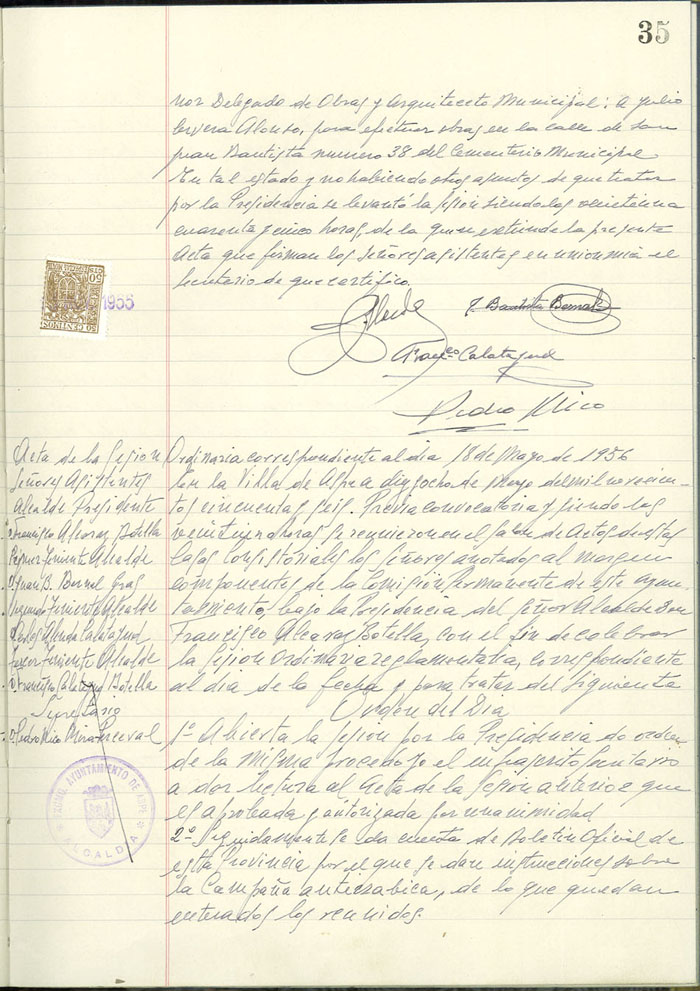 35
ñor Delegado de Obras y Arquitecto Municipal: A Julio
Cervera Alonso, para efectuar obras en la calle de San
Juan Bautista numero 38 del Cementerio Municipal
En tal estado y no habiendo otros asuntos de que tratar
por la Presidencia se levantó la sesion siendo las veintiuna
cuarenta y cinco horas, de la que se extiende la presente
Acta que firman los Señores asistentes en union mia el
Secretario de que certifico.
50 CENTIMOS
1956
J. Bautista Bernal
Franco Calatayud
Pedro Mico
Acta de la Sesion
Señores Asistentes
Alcalde Presidente
D. Francisco Alcaraz Botella
Primer Teniente Alcalde
D. Juan B. Bernal Gras
Segundo Teniente Alcalde
Carlos Alenda Calatayud
Tercer Teniente Alcalde
D. Francisco Calatayud Botella
Secretario
D. Pedro Mico Mira-Perceval
EXCMO. AYUNTAMIENTO DE ASPE
ALCALDIA
Ordinaria correspondiente al dia 18 de Mayo de 1956
En la Villa de Aspe a diez y ocho de Mayo de mil novecien-
tos cincuenta y seis. Previa convocatoria y siendo las
veintiuna horas se reunieron en el Salon de Actos de estas
Casas Consistoriales los Señores anotados al margen
componentes de la Comisión Permanente de este Ayun-
tamiento bajo la Presidencia del Señor Alcalde Don
Francisco Alcaraz Botella, con el fin de celebrar
la Sesion Ordinaria reglamentaria, correspondiente
al dia de la fecha y para tratar del siguiente
Orden del Dia
1º Abierta la Sesion por la Presidencia de orden
de la misma procedo yo el infrascrito Secretario
a dar lectura al Acta de la Sesion anterior que
es aprobada y autorizada por unanimidad
2º Seguidamente se da cuenta de Boletin Oficial de
esta Provincia por el que se dan instrucciones sobre
la Campaña antirrabica, de lo que quedan
enterados los reunidos.